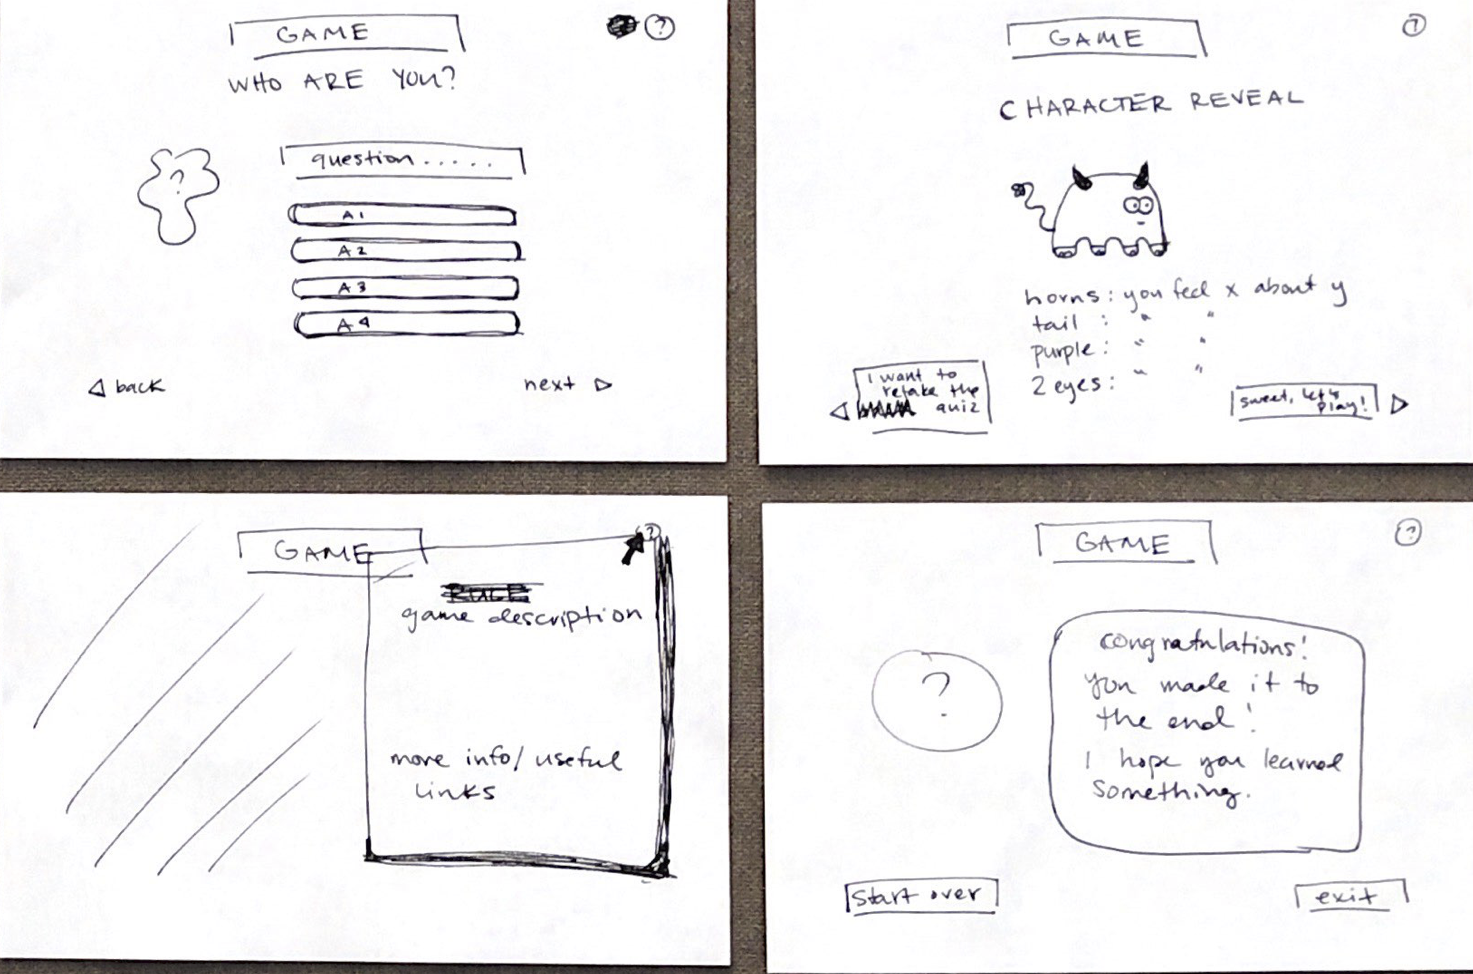 GAME
?
WHO ARE YOU?
?
question.....
A1
A2
A3
A4
back
next
GAME
?
CHARACTER REVEAL
horns: you feel x about y
tail : " "
purple: " "
2 eyes: " "
I want to
retake the
quiz
sweet, let's
play!
GAME
?
RULE
game description
more info/useful
links
GAME
?
?
congratulations!
you made it to
the end!
I hope you learned
something.
start over
exit